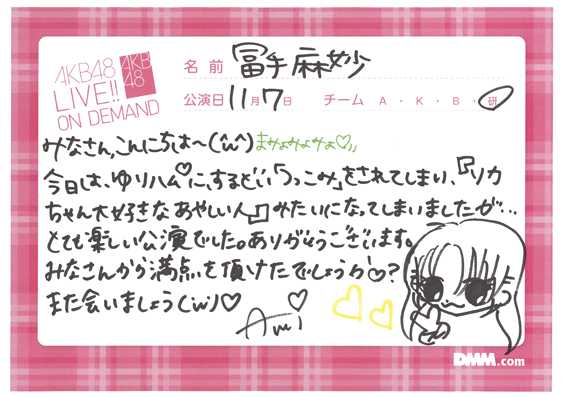 AKB48
LIVE!!
ON DEMAND
AKB
48
名前 冨手麻妙
公演日 11月7日 チーム A・K・B・研
みなさん、こんにちは〜(^ω^)まみょみょみょ♡
今日は、ゆりハム♡に、するどい「つっこみ」をされてしまい、『リカ
ちゃん大好きなあやしい人』みたいになってしまいましたが…
とても楽しい公演でした。ありがとうございます。
みなさんから満点を頂けたでしょうか♡?
また会いましょう(ω)♡
Ami
DMM.com